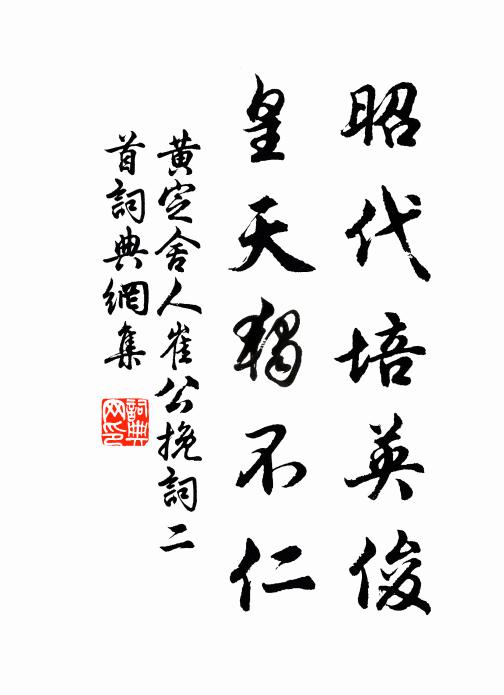 昭代培英俊
皇天独不仁
黄定舍人崔公挽詞二
首詞典網集
詞典
网印